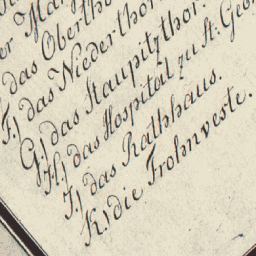 er Mar
das Oberthor
F.) das Niederthor.
G.) das Staupitzthor.
H.) das Hospital zu St: Geor
I.) das Rathhaus.
K.) die Frohnveste.